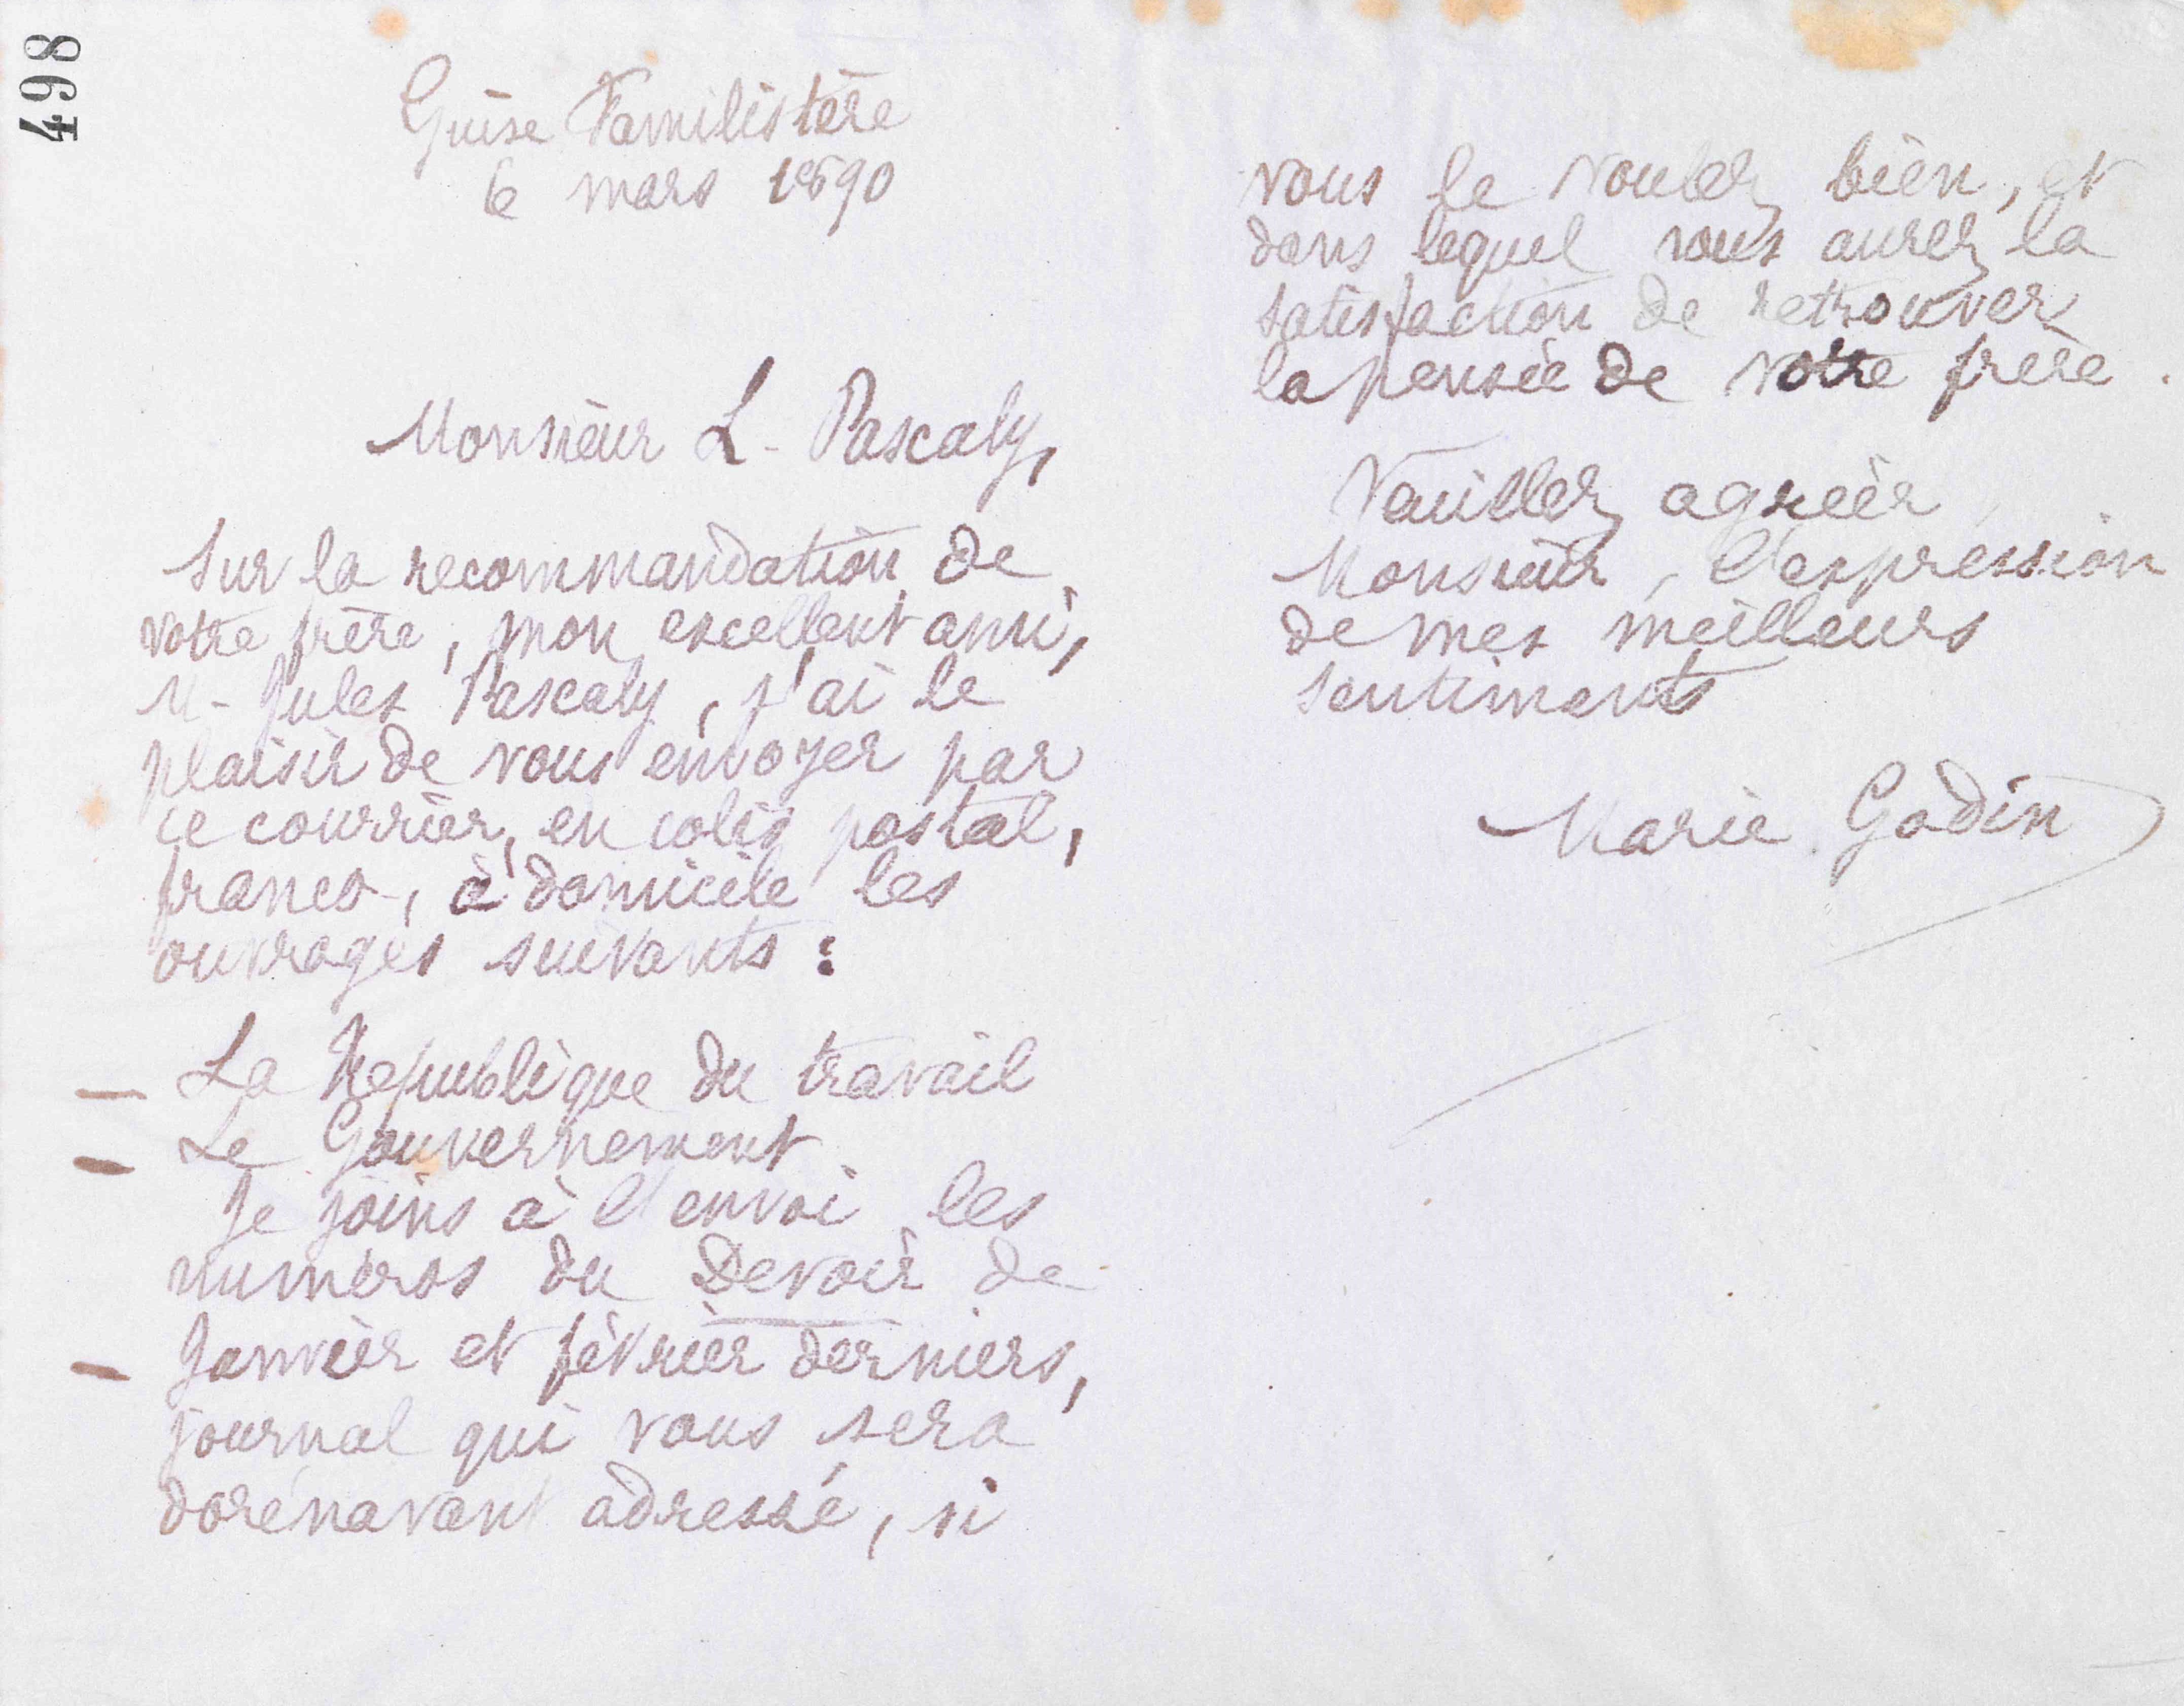 498
Guise Familistère
6 mars 1890
Monsieur L. Pascaly,
Sur la recommandation de
votre frère, mon excellent ami,
M. Jules Pascaly, j'ai le
plaisir de vous envoyer par
ce courrier, en colis postal,
franco, à domicile les
ouvrages suivants :
— La République du travail
— Le Gouvernement
Je joins à l'envoi les
numéros du Devoir de
— Janvier et février derniers,
journal qui vous sera
dorénavant adressé, si
vous le voulez bien, et
dans lequel vous aurez la
satisfaction de retrouver
la pensée de votre frère.
Veuillez agréer,
Monsieur, l'expression
de mes meilleurs
sentiments
Marie Godin